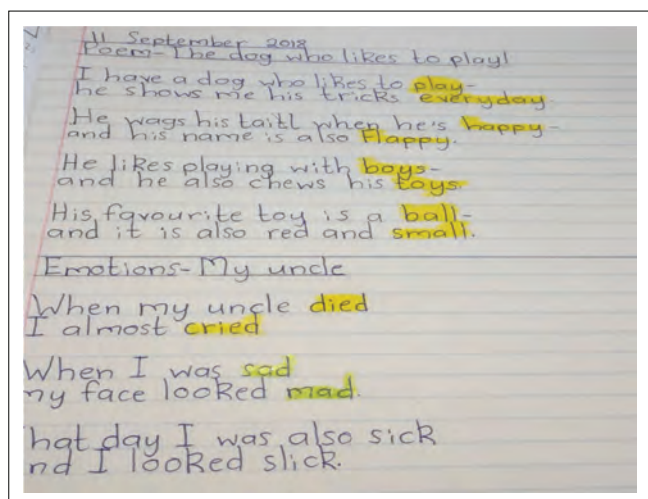 11 September 2018
Poem- The dog who likes to play!
I have a dog who likes to play-
he shows me his tricks everyday.
He wags his taitl when he's happy-
and his name is also Flappy.
He likes playing with boys-
and he also chews his toys.
His favourite toy is a ball-
and it is also red and small.
Emotions- My uncle
When my uncle died
I almost cried
When I was sad
my face looked mad.
hat day I was also sick
nd I looked slick.